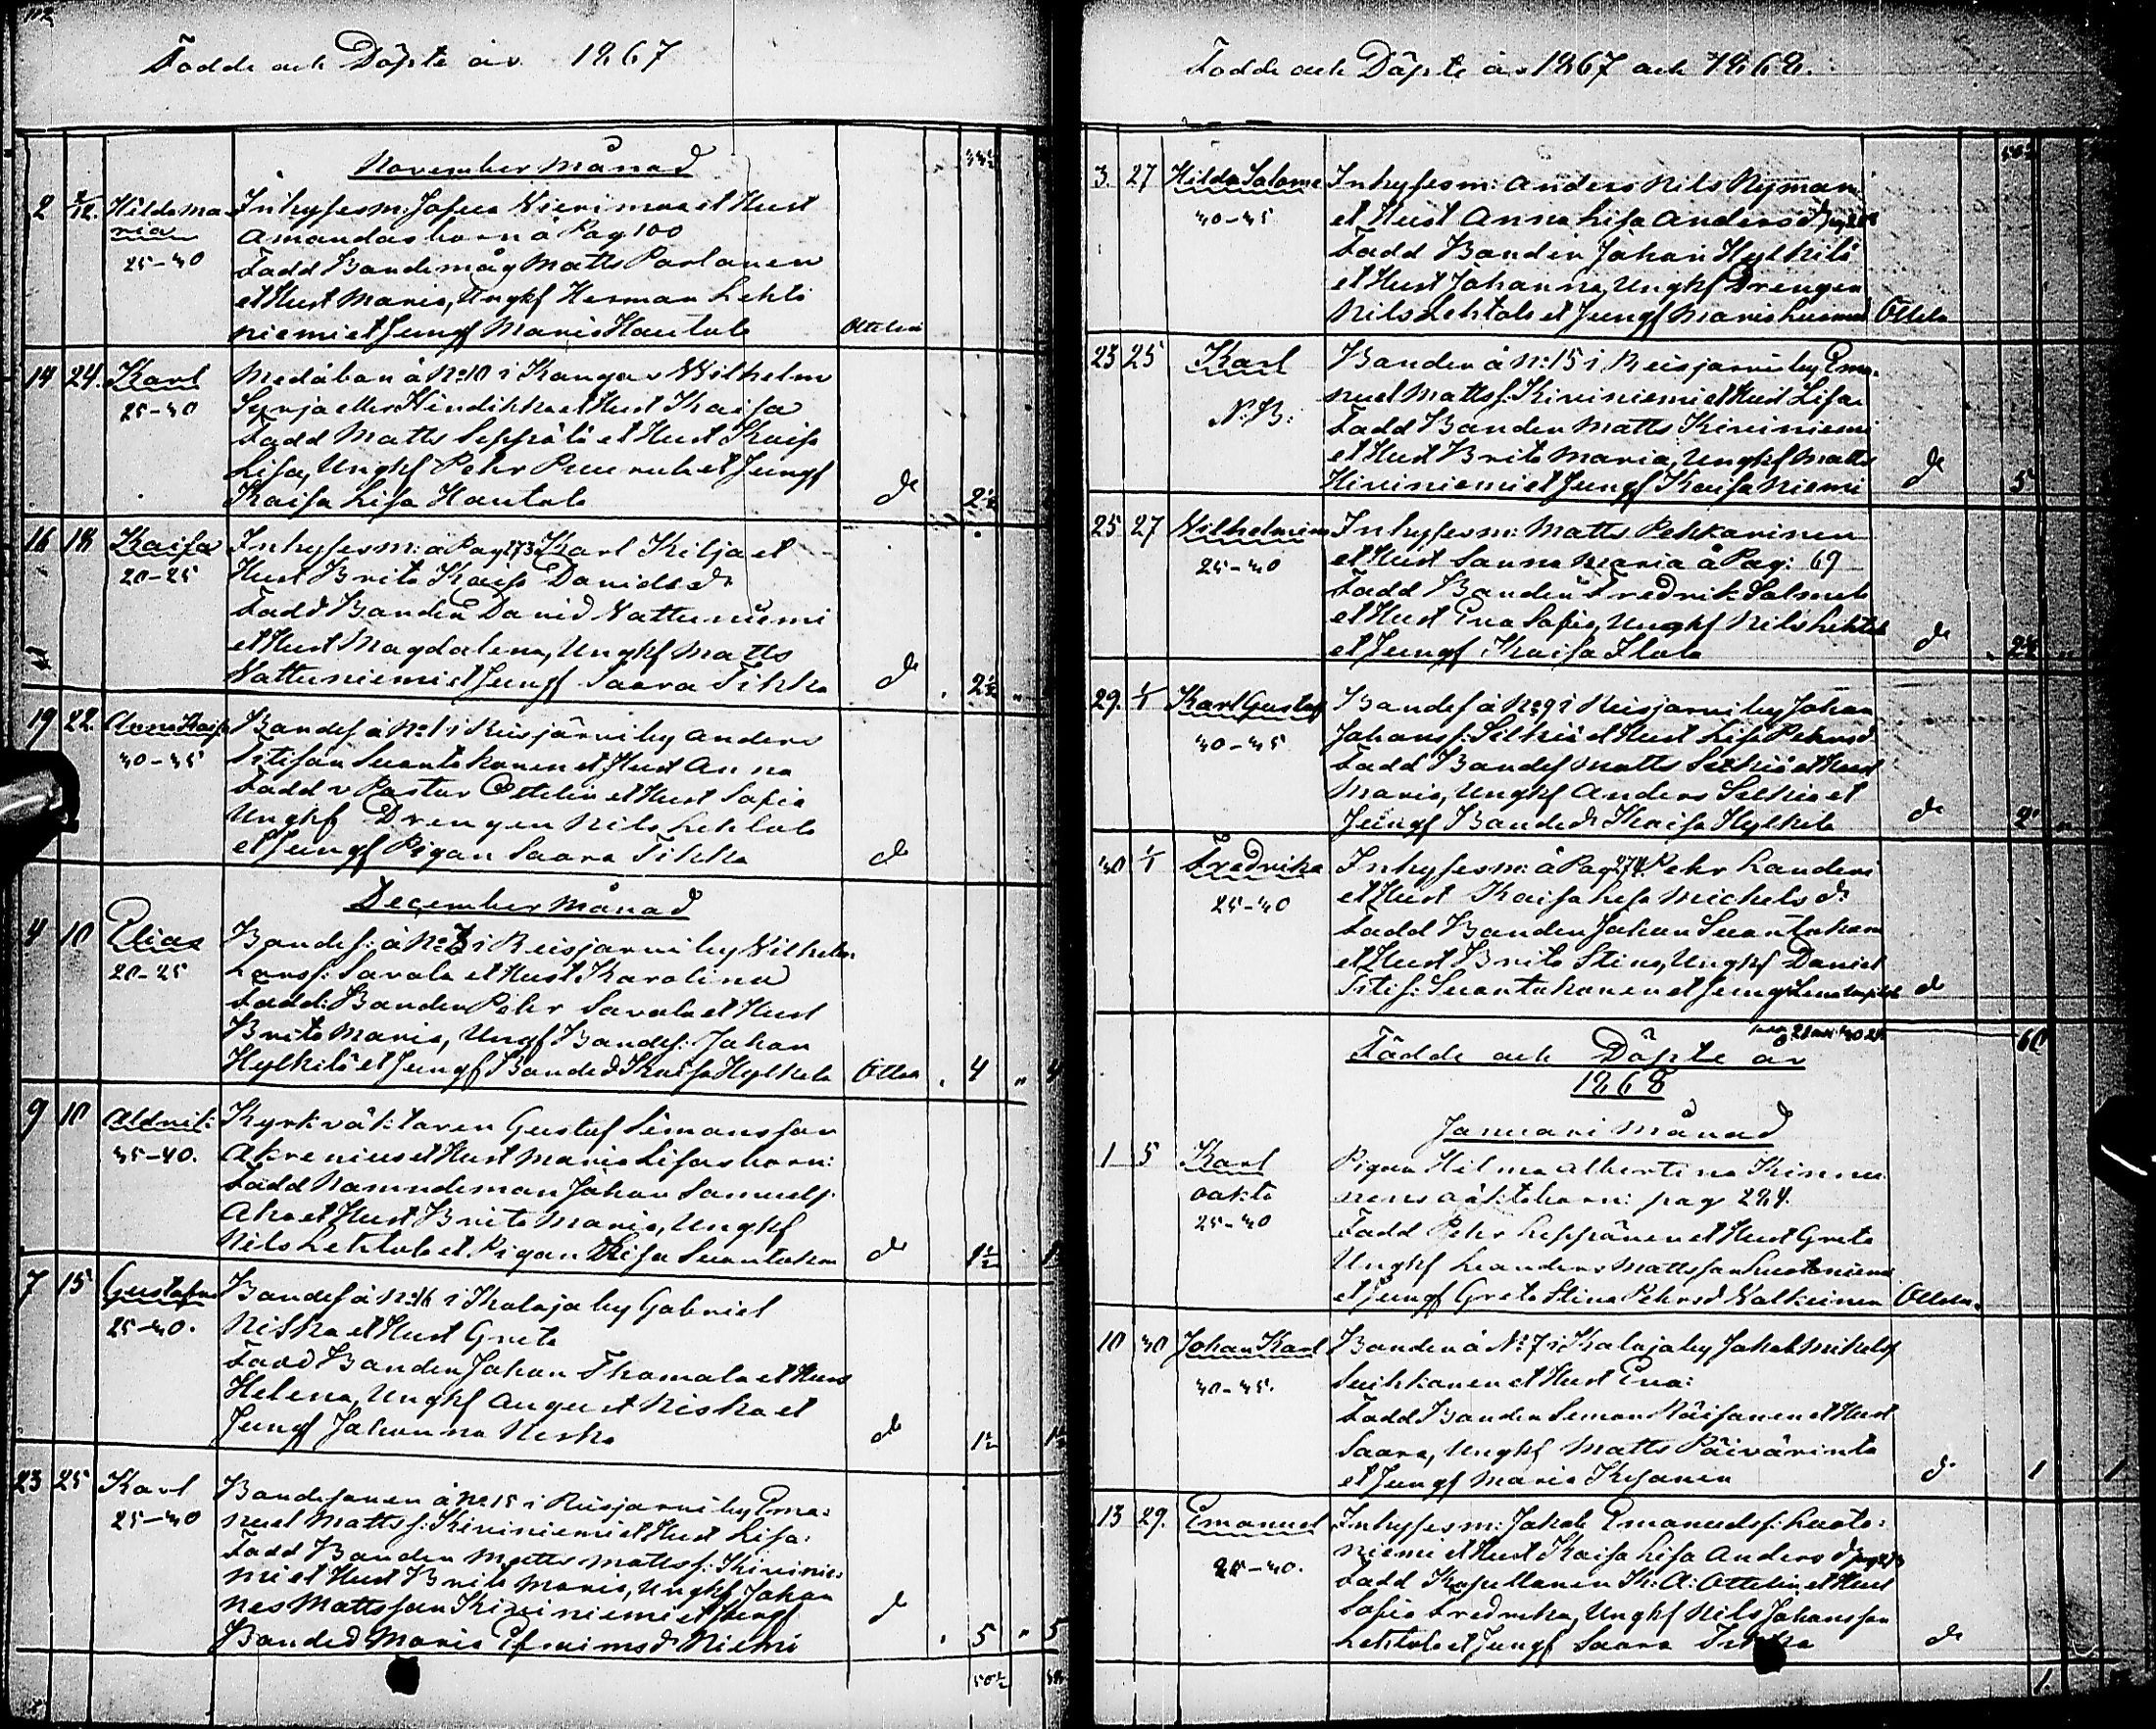 Födde och Döpte år 1867
November Månad
33½
2 2/12. Hilda Ma- Inhysesm: Josua Nierimaa et Hust
ria Amandas barn å Pag 100
25-30 Fadd Bondemåg Matts Parlanen
et Hust Maria, Ungkf Herman Lehto
niemi et Jungf Maria Hautala Ottelin
14 24. Karl Medåbon å No 10 i Kangas Wilhelm
25-30 Syrja eller Hindikka et Hust Kaisa
Fadd Matts Seppälä et Hust Kaisa
Lisa, Ungkf Pehr Puurula et Jungf
Kaisa Lisa Hautala do 2½
16 18 Kaisa Inhysesm: å Pag 173 Karl Kilja et
20-25 Hust Brita Kaisa Davidsdr
Fadd Bonden David Vattuniemi
et Hust Magdalena, Ungkf Matts
Vattuniemi et Jungf Saara Tikka do 2½
19 22. Anna Kaisa Bondes å No 1 i Reisjärvi by Anders
30-35 Stefan Suontakanen et Hust Anna
Fadd v Pastor Ottelin et Hust Sofia
Ungkf Drengen Nils Lehtola
et Jungf Pigan Saara Tikka do
December Månad
4 10 Elias Bondes: å No 3 i Reisjärvi by Vilhelm
20-25 Larss: Savola et Hust Karolina
Fadd: Bonden Pehr Savola et Hust
Brita Maria, Ungf Bondes: Johan
Hylkilä et Jungf Bonded Kaisa Hylkilä Ottelin 4 " 4
9 10 Aldrik: Kyrkväktaren Gustaf Simonsson
35-40. Akrenius et Hust Maria Lisas barn:
Fadd Nämndeman Johan Samuels:
Aho et Hust Brita Maria, Ungkf
Nils Lehtola et Pigan Lisa Suontakan do 1½
7 15 Gustafva Bondes å No 16 i Kalaja by Gabriel
25-30. Niska et Hust Greta
Fadd Bonden Johan Thomala et Hust
Helena, Ungkf August Niska et
Jungf Johanna Niska do 1½ 1½
23 25 Karl Bondesonen å No 15 i Reisjärvi by Ema-
25-30 nuel Mattss: Kiviniemi et Hust Lisa:
Fadd Bonden Matts Mattss: Kivinie-
mi et Hust Brita Maria, Ungkf Johan
nes Mattsson Kiviniemi et Jungf
Bonded Maria Efraimsdr Niemi do 5 " 5
50½
Födde och Döpte år 1867 och 1868.
50½
3. 27 Hilda Salome Inhysesm: Anders Nils Nyman
30-35 et Hust Anna Lisa Andersdr
Fadd Bonden Johan Hylkilä
et Hust Johanna, Ungkf Drengen
Nils Lehtola et Jungf Maria Ottelin
23 25 Karl Bonden å No: 15 i Reisjärvi by Ema-
N:B: nuel Mattss: Kiviniemi et Hust Lisa
Fadd Bonden Matts Kiviniemi
et Hust Brita Maria, Ungkf Matts
Kiviniemi et Jungf Kaisa Niemi do 5
25 27 Wilhelmina Inhysesm: Matts Pekkarinen
25-30 et Hust Sanna Maria å Pag: 69
Fadd Bonden Fredrik Salmela
et Hust Eva Sofia, Ungkf Nils Lehtola
et Jungf Kaisa Ilola do 2½
29. 1/1 Karl Gustaf Bondes å No 9 i Reisjärvi by Johan
30-35 Johans: Silkiö et Hust Lisa Pehrsd
Fadd Bondes Matts Silkiö et Hust
Maria, Ungkf Anders Silkiö et
Jungf Bondedr Kaisa Hylkilä do 2
30 1/1 Fredrika Inhysesm: å Pag 274 Pehr Landers
25-30 et Hust Kaisa Lisa Michelsdr
Fadd Bonden Johan Suontakan
et Hust Brita Stina, Ungkf Daniel
Stefs: Suontakanen et Jungf Lena do
Födde och Döpte år 60
1868
Januari Månad
1 5 Karl Pigan Hilma Albertina Kinnu
oäkta nens oäkta barn: pag 284.
25-30 Fadd Pehr Leppänen et Hust Greta
Ungkf Leander Mattsson Luotoniemi
et Jungf Greta Stina Pehrsd Valkeinen Ottelin
10 30 Johan Karl Bonden å No: 7 i Kalaja by Jakob Mikels
30-35. Suihkonen et Hust Eva:
Fadd Bonden Simon Räisänen et Hust
Saara, Ungkf Matts Päivärinta
et Jungf Maria Kesänen do 1 1
13 29. Emanuel Inhysesm: Jakob Emanuels: Luoto-
25-30. niemi et Hust Kaisa Lisa Andersd
Fadd Kapellanen K: A: Ottelin et Hust
Sofia Fredrika, Ungkf Nils Johansson
Lehtola et Jungf Saara Tikka do
1.